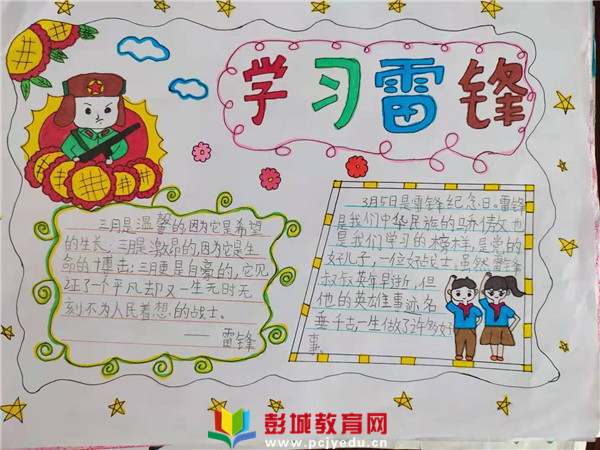 学习雷锋
三月是温馨的,因为它是希望
的生长;三月是激昂的,因为它是生
命的搏击;三月更是自豪的,它见
证了一个平凡却又一生无时无
刻不为人民着想的战士。
——雷锋
3月5日是雷锋纪念日。雷锋
是我们中华民族的骄傲,也
是我们学习的榜样,是党的
好儿子,一位好战士,虽然雷锋
叔叔英年早逝,但
他的英雄事迹名
垂千古,一生做了许多好
事。
彭城教育网
www.pcjyedu.cn